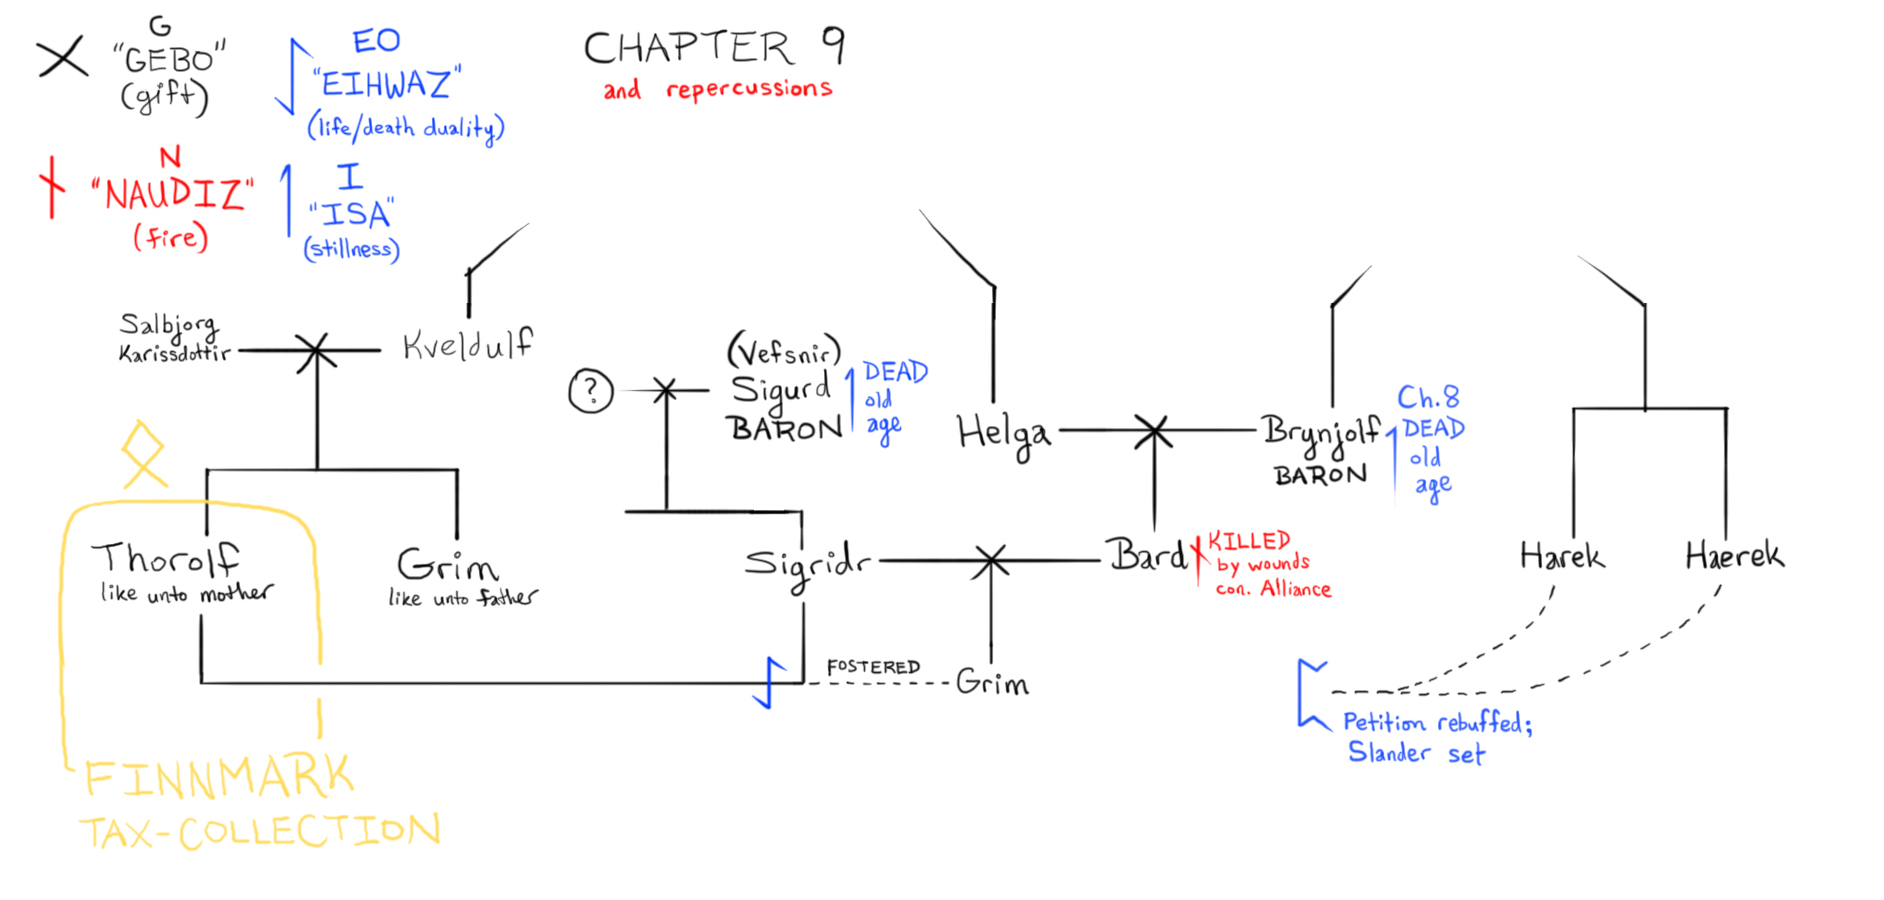 G
"GEBO"
(gift)
EO
"EIHWAZ"
(life/death duality)
N
"NAUDIZ"
(fire)
I
"ISA"
(stillness)
CHAPTER 9
and repercussions
Salbjorg
Karissdottir
Kveldulf
?
(Vefsnir)
Sigurd
BARON
DEAD
old
age
Helga
Brynjolf
BARON
Ch.8
DEAD
old
age
Thorolf
like unto mother
Grim
like unto father
Sigridr
Bard
KILLED
by wounds
con. Alliance
Harek
Haerek
FOSTERED
Grim
Petition rebuffed;
Slander set
FINNMARK
TAX-COLLECTION